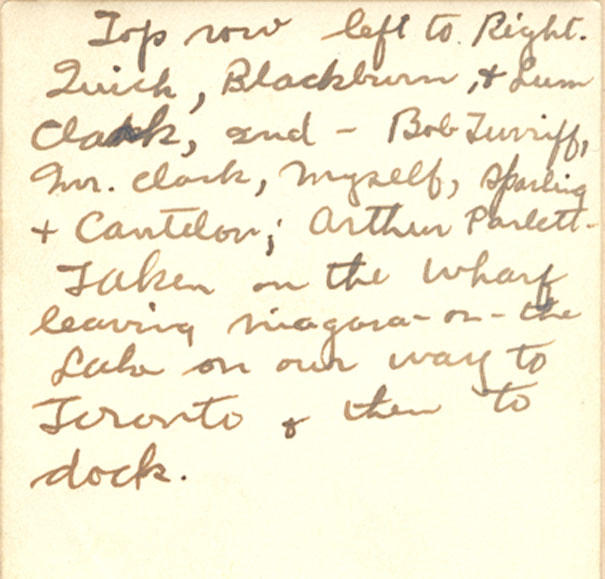 Top row left to Right.
Quick, Blackburn, + Lum
Clark, 2nd - Bob Turriff,
Mr. Clark, Myself, Sparling
+ Cantelon; Arthur Parlett-
Taken on the wharf
leaving Niagara-on-the
Lake on our way to
Toronto & then to
dock.